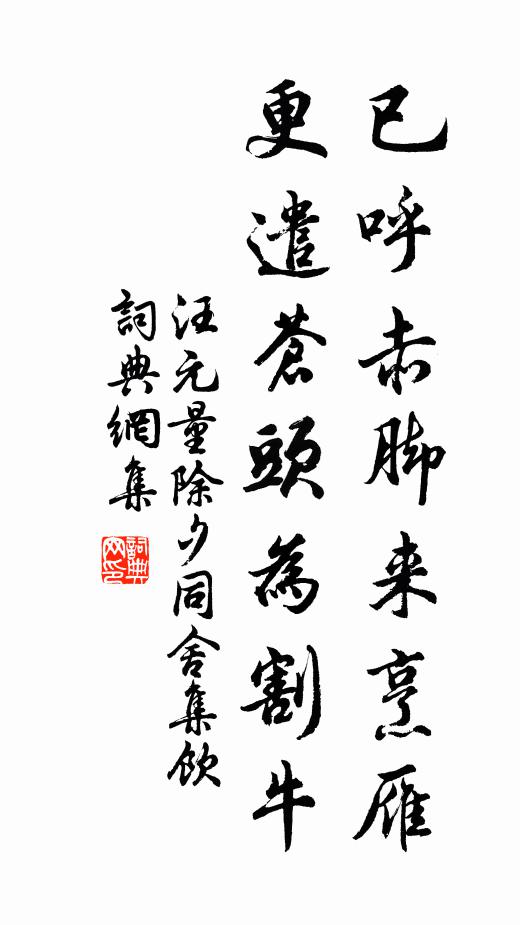 已呼赤脚来烹雁
更遣蒼頭為割牛
汪元量除夕同舍集飲
詞典網集
詞典網印